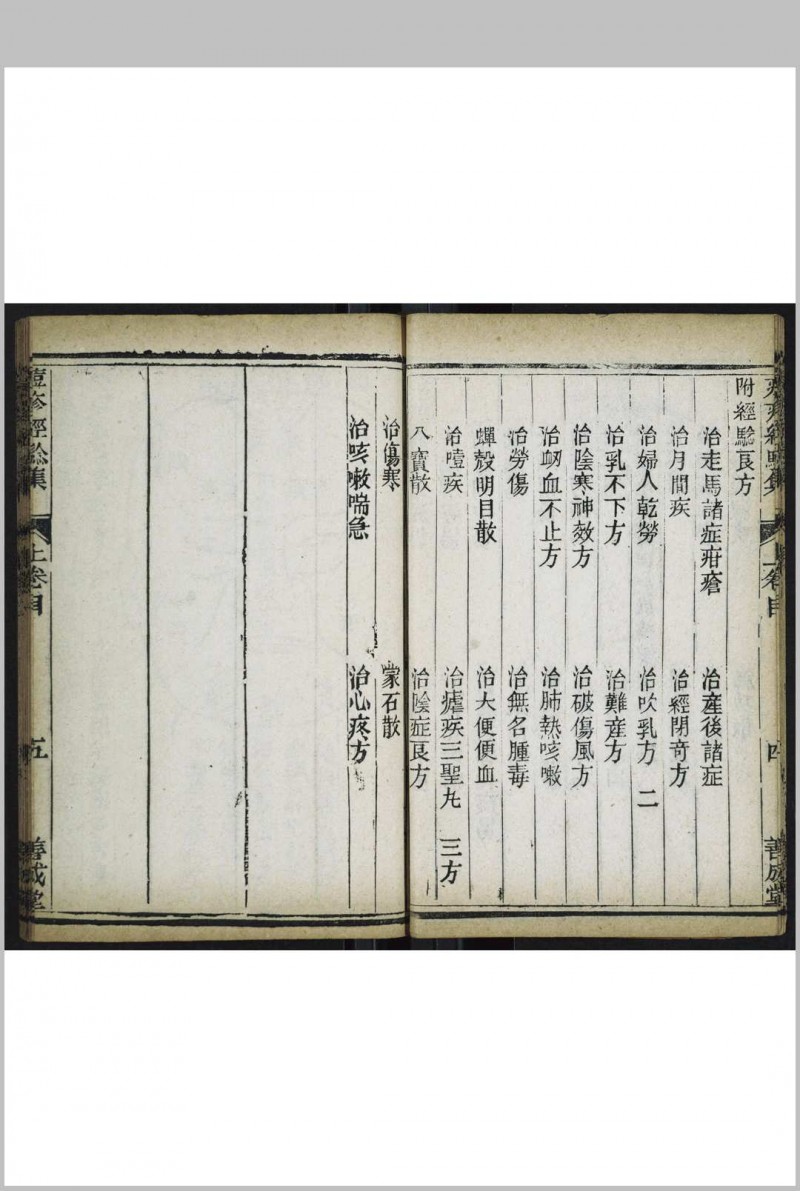 附經驗良方
治走馬諸症疳瘡　治產後諸症
治月間疾　治經閉奇方
治婦人乾勞　治吹乳方　二
治乳不下方　治難產方
治陰寒神效方　治破傷風方
治衂血不止方　治肺熱咳嗽
治勞傷　治無名腫毒
蟬殼明目散　治大便便血
治噎疾　治瘧疾三聖丸　三方
八寶散　治陰症良方
治傷寒　蒙石散
治咳嗽喘急　治心疼方
經驗集　上卷目　四　善成堂
痘疹經驗集　上卷目　五　善成堂